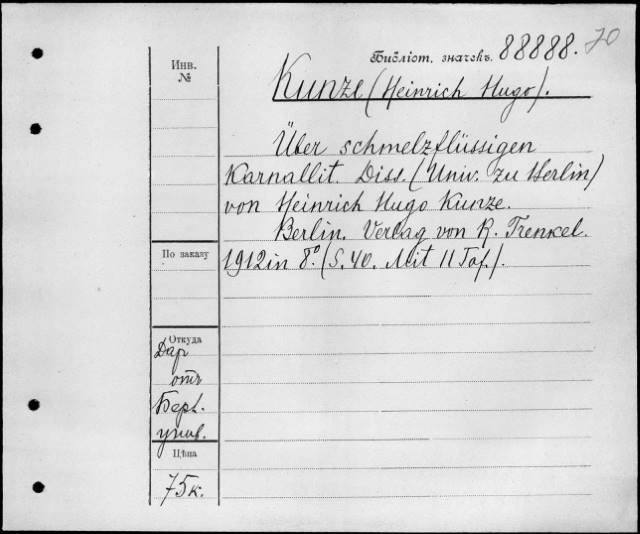 Библіот. значекъ. 88888. 70
Инв.
№
Kunze (Heinrich Hugo).
Über schmelzflüssigen
Karnallit. Diss. (Univ. zu Berlin)
von Heinrich Hugo Kunze.
Berlin. Verlag von R. Trenkel.
По заказу
1912 in 8.° (S. 40. Mit 11 Taf.).
Откуда
Даръ
отъ
Берл.
унив.
Цѣна
75 к.